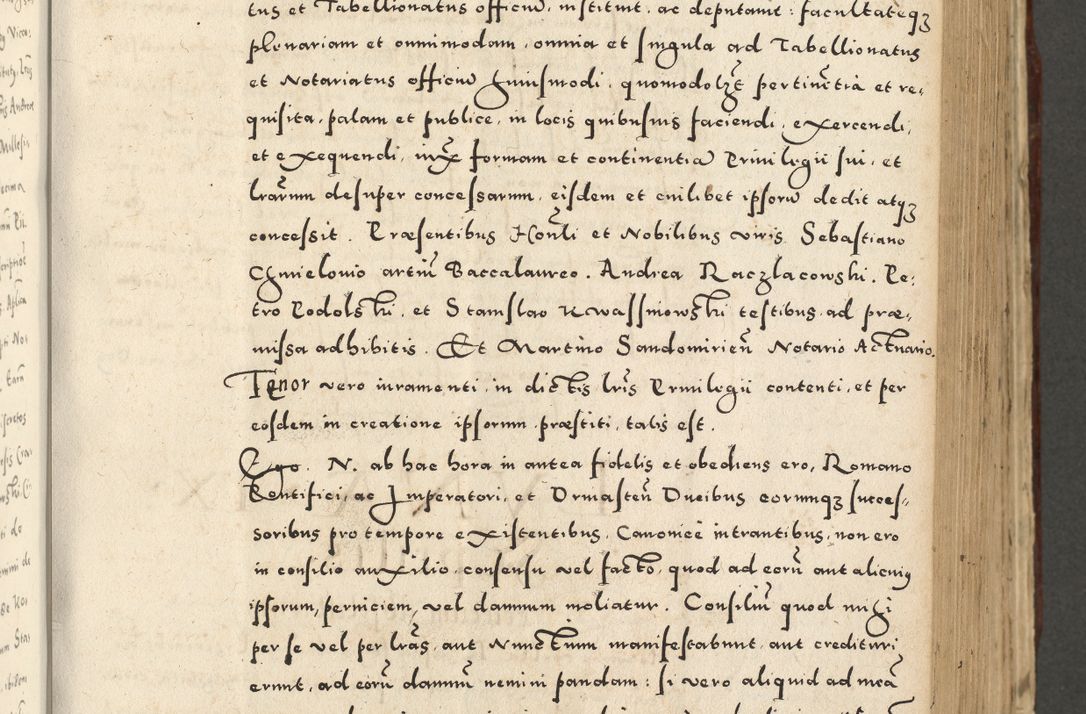 tus et Tabellionatus officiũ, instituit, ac deputauit: facultateqꝫ
plenariam et omnimodam, omnia et singula ad Tabellionatus
et Notariatus officiũ huiusmodi, quomodolꝫt pertinẽtia et re-
quisita, palam et publice, in locis quibusuis faciendi, exercendi,
et exequendi, iuxͣ formam et continentiã Priuilegii sui, et
lrãrum desuper concessarum, eisdem et cuilibet ipsorũ dedit atqꝫ
concessit. Præsentibus Honˡli et Nobilibus viris Sebastiano
Chmielouio artiũ Baccalaureo. Andrea Raczlacowski. Pe-
tro Podolski, et Stanislao Kwassniowski testibus ad præ-
missa adhibitis. Et Martino Sandomirieñ Notario Actuario.
Tenor vero iuramenti, in dictis lrĩs Priuilegii contenti, et per
eosdem in creatione ipsorum præstiti, talis est.
Ego. N. ab hac hora in antea fidelis et obediens ero, Romano
Pontifici, ac Imperatori, et Ormasteñ Ducibus eorumqꝫ succes-
soribus pro tempore existentibus, Canonicè intrantibus, non ero
in consilio auxilio, consensu vel facto, quod ad eorũ aut alicuiꝰ
ipsorum, perniciem, vel damnum moliatur. Consiliũ quod mihi
per se vel per lrãs, aut Nunctium manifestabunt, aut credituri
erunt, ad eorũ damnũ nemini pandam: si vero aliquid ad meã